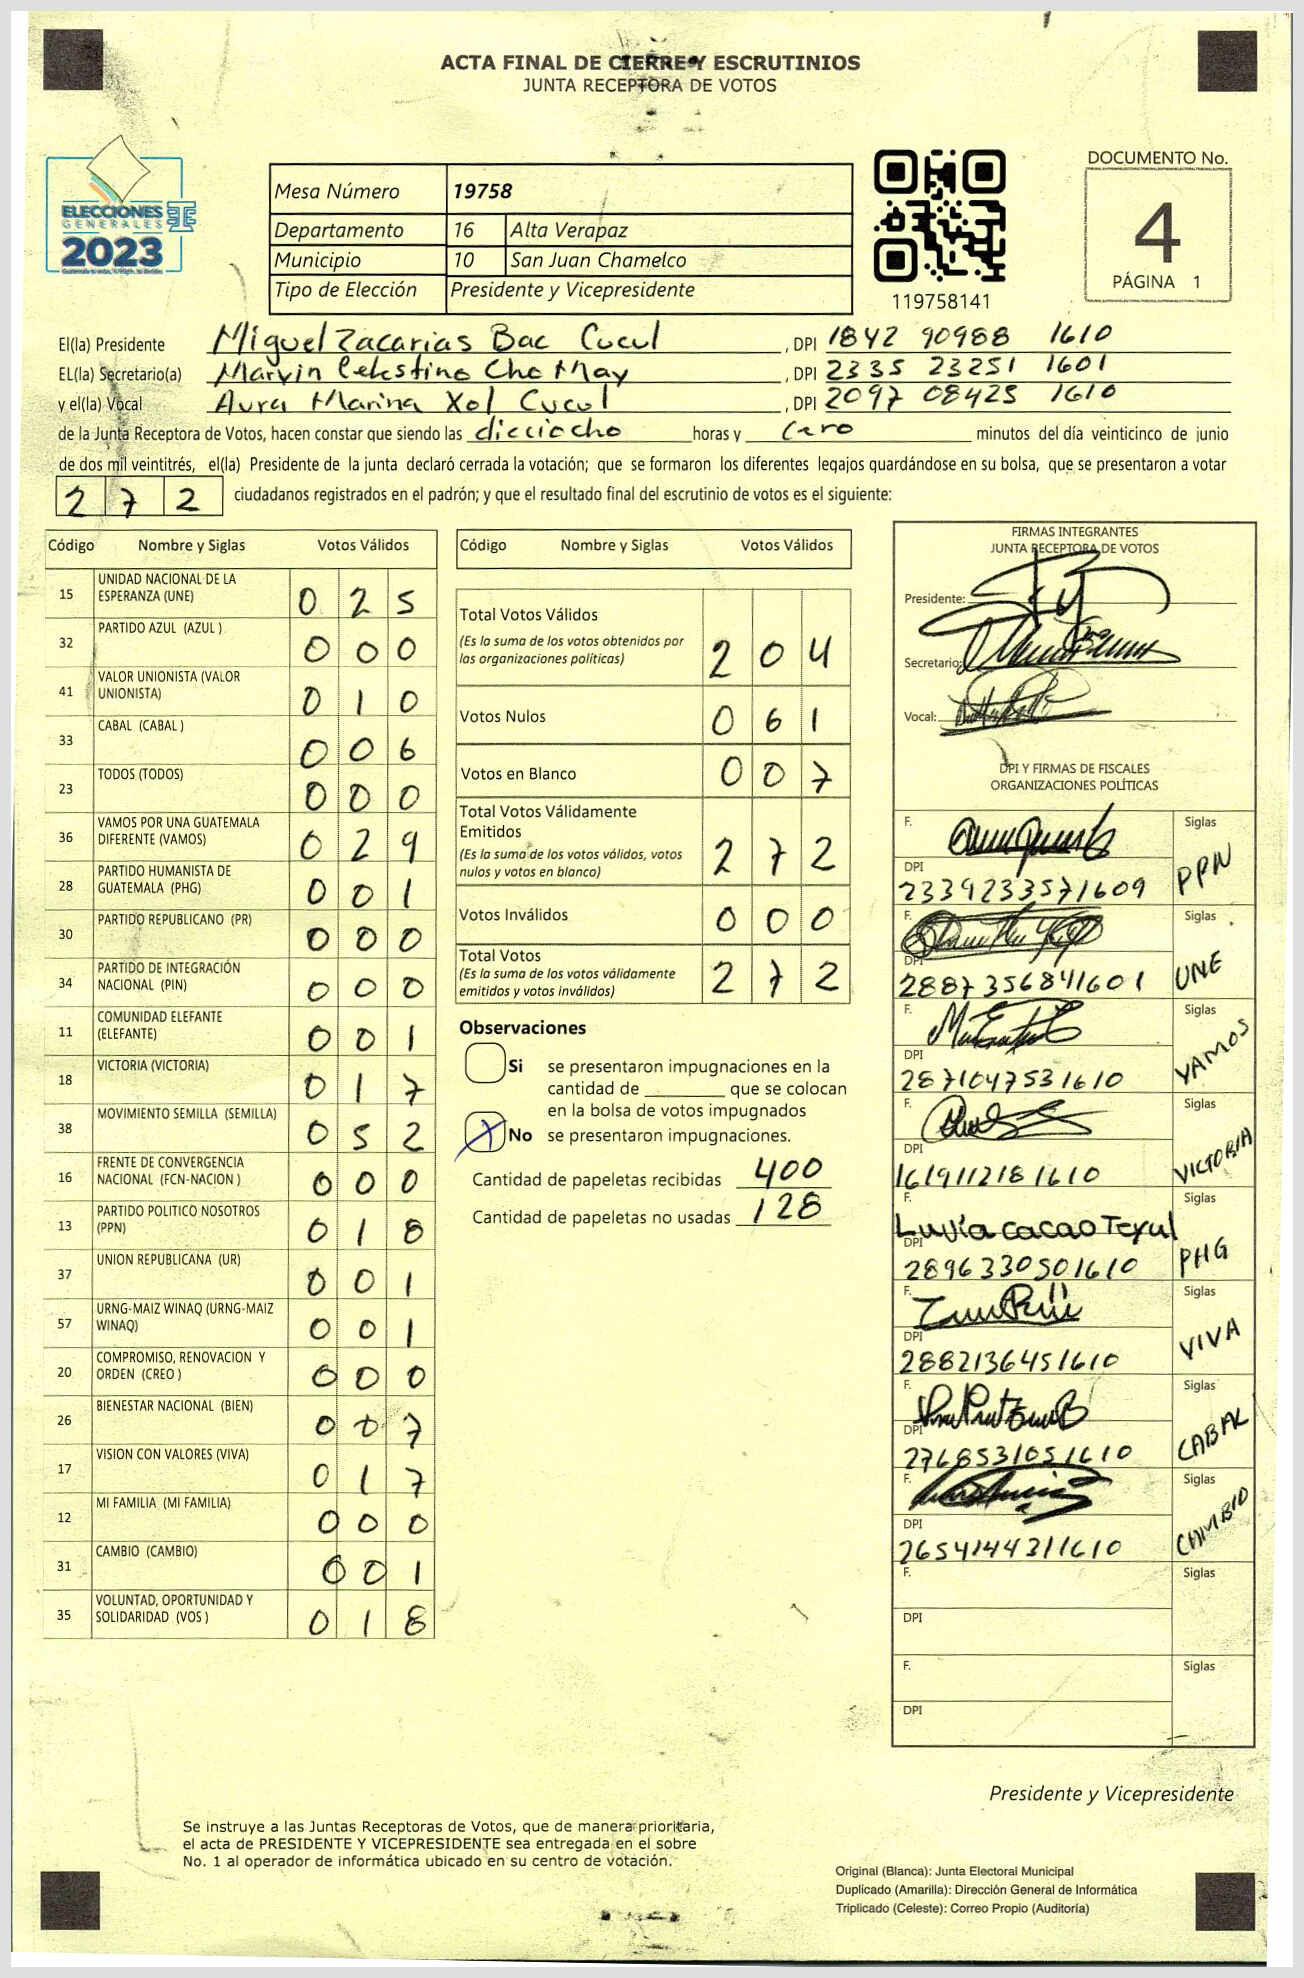 ACTA FINAL DE CIERRE Y ESCRUTINIOS
JUNTA RECEPTORA DE VOTOS
ELECCIONES
GENERALES
2023
Mesa Número 19758
Departamento 16 Alta Verapaz
Municipio 10 San Juan Chamelco
Tipo de Elección Presidente y Vicepresidente
119758141
DOCUMENTO No.
4
PÁGINA 1
El(la) Presidente Miguel Zacarias Bac Cucul, DPI 1842 90988 1610
EL(la) Secretario(a) Marvin Celestino Cho May, DPI 2335 23251 1601
y el(la) Vocal Aura Marina Xol Cucul, DPI 2097 08425 1610
de la Junta Receptora de Votos, hacen constar que siendo las dieciocho horas y cero minutos del día veinticinco de junio
de dos mil veintitrés, el(la) Presidente de la junta declaró cerrada la votación; que se formaron los diferentes legajos guardándose en su bolsa, que se presentaron a votar
272 ciudadanos registrados en el padrón; y que el resultado final del escrutinio de votos es el siguiente:
Código Nombre y Siglas Votos Válidos
15 UNIDAD NACIONAL DE LA ESPERANZA (UNE) 025
32 PARTIDO AZUL (AZUL ) 000
41 VALOR UNIONISTA (VALOR UNIONISTA) 010
33 CABAL (CABAL ) 006
23 TODOS (TODOS) 000
36 VAMOS POR UNA GUATEMALA DIFERENTE (VAMOS) 029
28 PARTIDO HUMANISTA DE GUATEMALA (PHG) 001
30 PARTIDO REPUBLICANO (PR) 000
34 PARTIDO DE INTEGRACIÓN NACIONAL (PIN) 000
11 COMUNIDAD ELEFANTE (ELEFANTE) 001
18 VICTORIA (VICTORIA) 017
38 MOVIMIENTO SEMILLA (SEMILLA) 052
16 FRENTE DE CONVERGENCIA NACIONAL (FCN-NACION ) 000
13 PARTIDO POLITICO NOSOTROS (PPN) 018
37 UNION REPUBLICANA (UR) 001
57 URNG-MAIZ WINAQ (URNG-MAIZ WINAQ) 001
20 COMPROMISO, RENOVACION Y ORDEN (CREO ) 000
26 BIENESTAR NACIONAL (BIEN) 007
17 VISION CON VALORES (VIVA) 017
12 MI FAMILIA (MI FAMILIA) 000
31 CAMBIO (CAMBIO) 001
35 VOLUNTAD, OPORTUNIDAD Y SOLIDARIDAD (VOS ) 018
Código Nombre y Siglas Votos Válidos
Total Votos Válidos
(Es la suma de los votos obtenidos por las organizaciones políticas) 204
Votos Nulos 061
Votos en Blanco 007
Total Votos Válidamente Emitidos
(Es la suma de los votos válidos, votos nulos y votos en blanco) 272
Votos Inválidos 000
Total Votos
(Es la suma de los votos válidamente emitidos y votos inválidos) 272
Observaciones
Si se presentaron impugnaciones en la
cantidad de ________ que se colocan
en la bolsa de votos impugnados
X No se presentaron impugnaciones.
Cantidad de papeletas recibidas 400
Cantidad de papeletas no usadas 128
FIRMAS INTEGRANTES
JUNTA RECEPTORA DE VOTOS
Presidente:
Secretario:
Vocal:
DPI Y FIRMAS DE FISCALES
ORGANIZACIONES POLÍTICAS
F. Siglas PPN
DPI 2339233571609
F. Siglas UNE
DPI 2887356841601
F. Siglas VAMOS
DPI 2871047531610
F. Siglas VICTORIA
DPI 1619112181610
F. Siglas PHG
DPI 2896330501610
F. Siglas VIVA
DPI 2882136451610
F. Siglas CABAL
DPI 2768531051610
F. Siglas CAMBIO
DPI 2654144311610
F. Siglas
DPI
F. Siglas
DPI
Presidente y Vicepresidente
Se instruye a las Juntas Receptoras de Votos, que de manera prioritaria,
el acta de PRESIDENTE Y VICEPRESIDENTE sea entregada en el sobre
No. 1 al operador de informática ubicado en su centro de votación.
Original (Blanca): Junta Electoral Municipal
Duplicado (Amarilla): Dirección General de Informática
Triplicado (Celeste): Correo Propio (Auditoría)